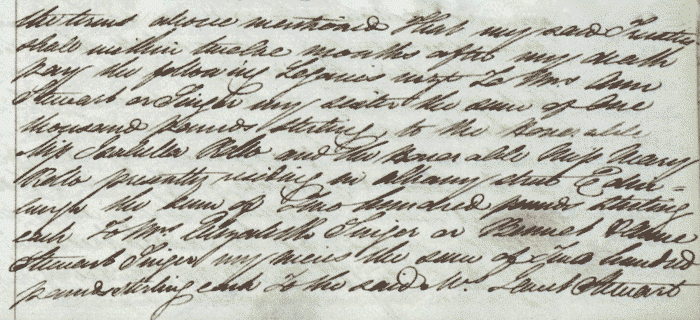 the terms above mentioned That my said Trustees
shall within twelve months after my death
pay the following Legacies viz To Mrs Ann
Stewart or Singer my sister the sume of One
thousand pounds sterling to the Honorable
Miss Isabella Rollo and the Honorable Miss Mary
Rollo presently residing in Albany Street Edin-
burgh the sum of Two hundred pounds sterling
each To Mrs Elizabeth Singer or and Anne
Stewart Singer my nieces the sume of Two hundred
pounds sterling each To the said Mrs Janet Stewart